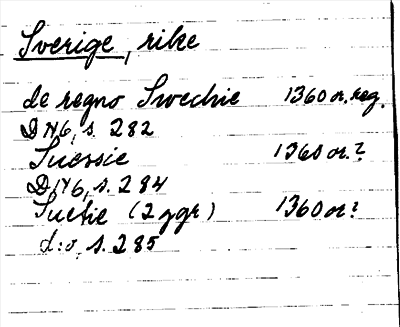 Sverige, rike
de regno Swechie 1360 or. reg.
DN6, s. 282
Suessie 1360 or.?
DN6, s. 284
Suetie (2 ggr) 1360 or?
d:o, s. 285